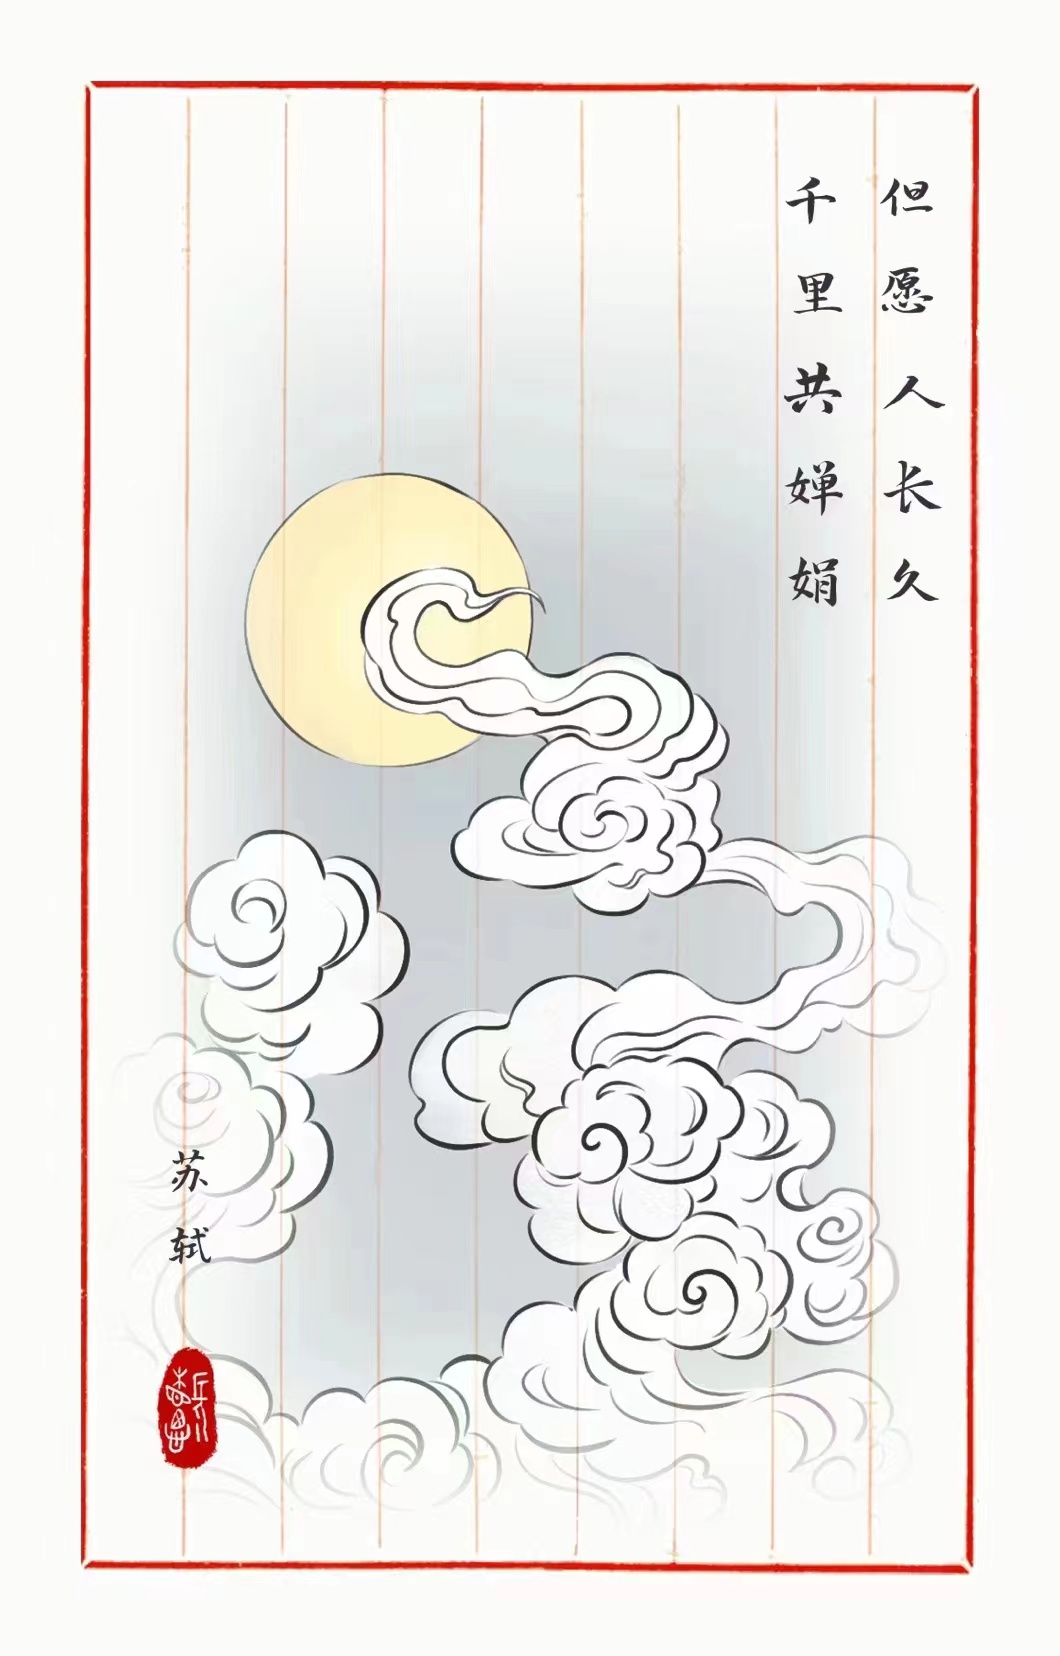 但愿人长久
千里共婵娟
苏轼